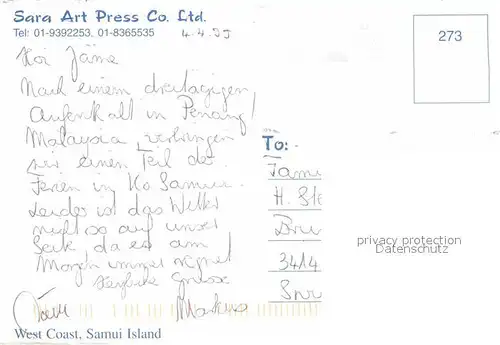 Sara Art Press Co. Ltd.
Tel: 01-9392253, 01-8365535
4.4.95
273
Hoi
Nach einem dreitägigen
Aufenthalt in Penang/
Malaysia verbringen
wir einen Teil der
Ferien in Ko Samui.
Leider ist das Wetter
nicht so auf unser
Seite da es am
Morgen immer regnet
Herzliche Grüsse
Markus
To:-
H. Ste
Bru
3414
privacy protection
Datenschutz
West Coast, Samui Island